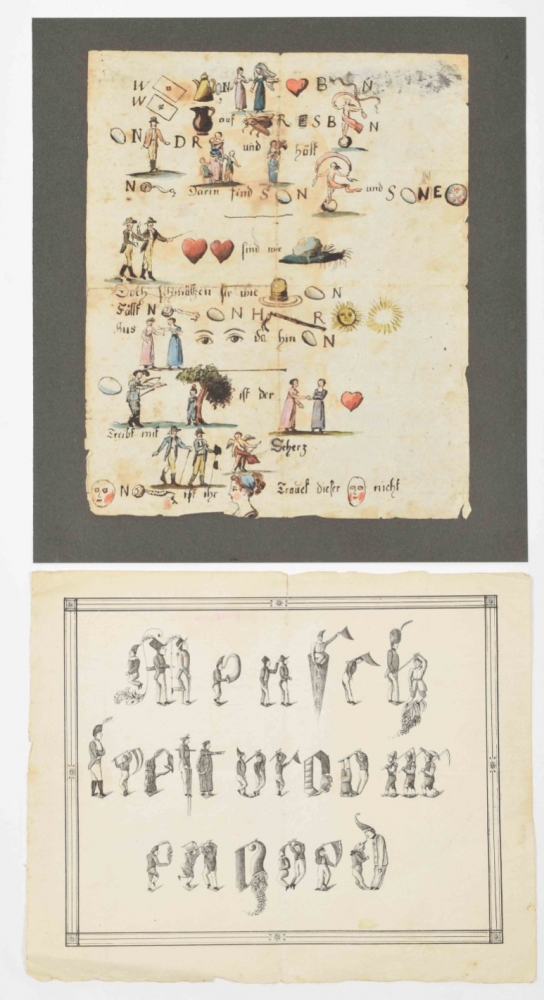 W N B N
W auf R E S B N
O N D R und hält
N Darin sind S N und S N E
sind wie
Doch schmülken sie wie N
Fällt N O N H R
Aus da hin N
ist der
Treibt mit Scherz
N ist ihr Trauet dieser nicht
Mensch
leeft vroom
en goed